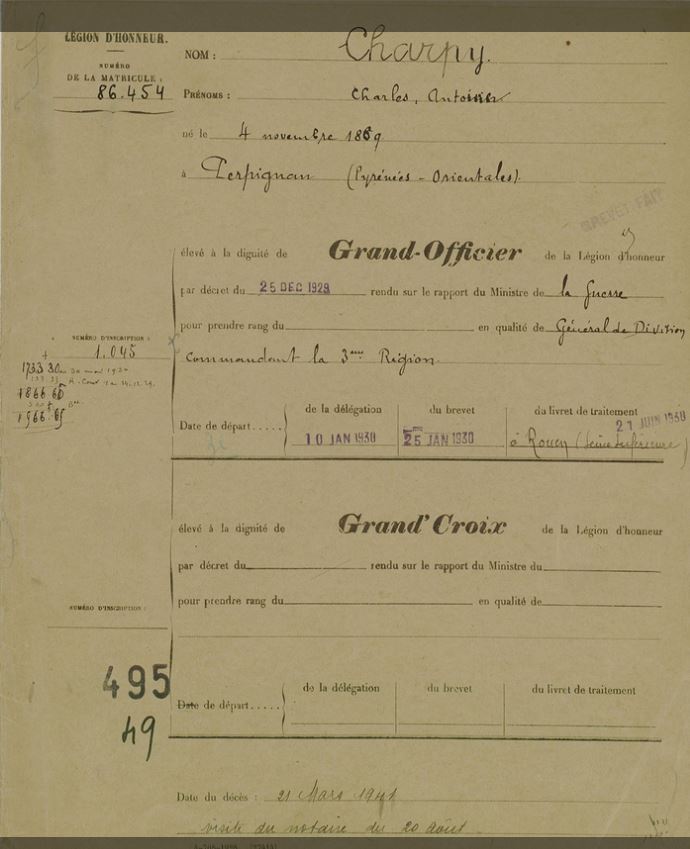 LÉGION D'HONNEUR.
NUMÉRO
DE LA MATRICULE :
86.454
NOM : Charpy.
PRÉNOMS : Charles, Antoine
né le 4 novembre 1869
à Perpignan (Pyrénées - Orientales).
BREVET FAIT
élevé à la dignité de Grand-Officier de la Légion d'honneur
par décret du 25 DEC 1929 rendu sur le rapport du Ministre de la Guerre
pour prendre rang du en qualité de Général de Division
NUMÉRO D'INSCRIPTION :
1.045
commandant la 3ème Région.
1733 30
1866 65
1966.65
de la délégation du brevet du livret de traitement
Date de départ..... 10 JAN 1930 25 JAN 1930 21 JUIN 1930
à Rouen (Seine Inférieure)
élevé à la dignité de Grand'Croix de la Légion d'honneur
par décret du rendu sur le rapport du Ministre du
pour prendre rang du en qualité de
NUMÉRO D'INSCRIPTION :
495
49
de la délégation du brevet du livret de traitement
Date de départ.....
Date du décès : 21 Mars 1941
visite du notaire du 20 août